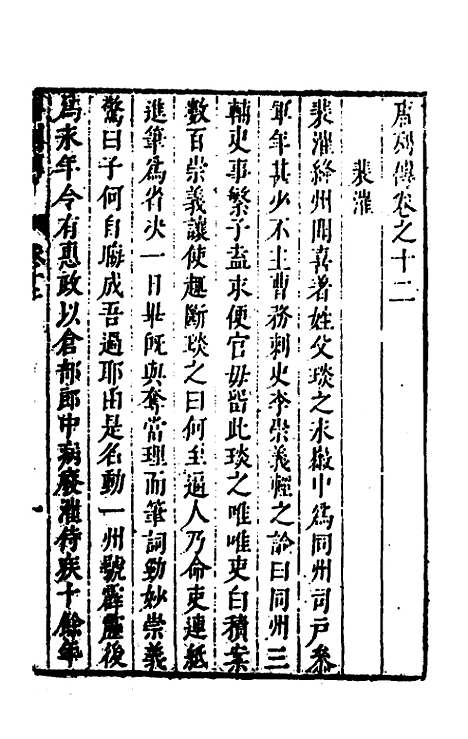 唐列傳卷之十二
裴漼
裴漼絳州聞喜著姓父琰之永徽中爲同州司戸叅
軍年甚少不主曹務刺史李崇義輕之諭曰同州三
輔吏事繁子盍求便官毋留此琰之唯唯吏白積案
數百崇義讓使趣斷琰之曰何至逼人乃命吏連紙
進筆爲省决一日畢既與奪當理而筆詞勁妙崇義
驚曰子何自晦成吾過耶由是名動一州號霹靂後
爲永年令有惠政以倉部郎中病廢漼侍疾十餘年